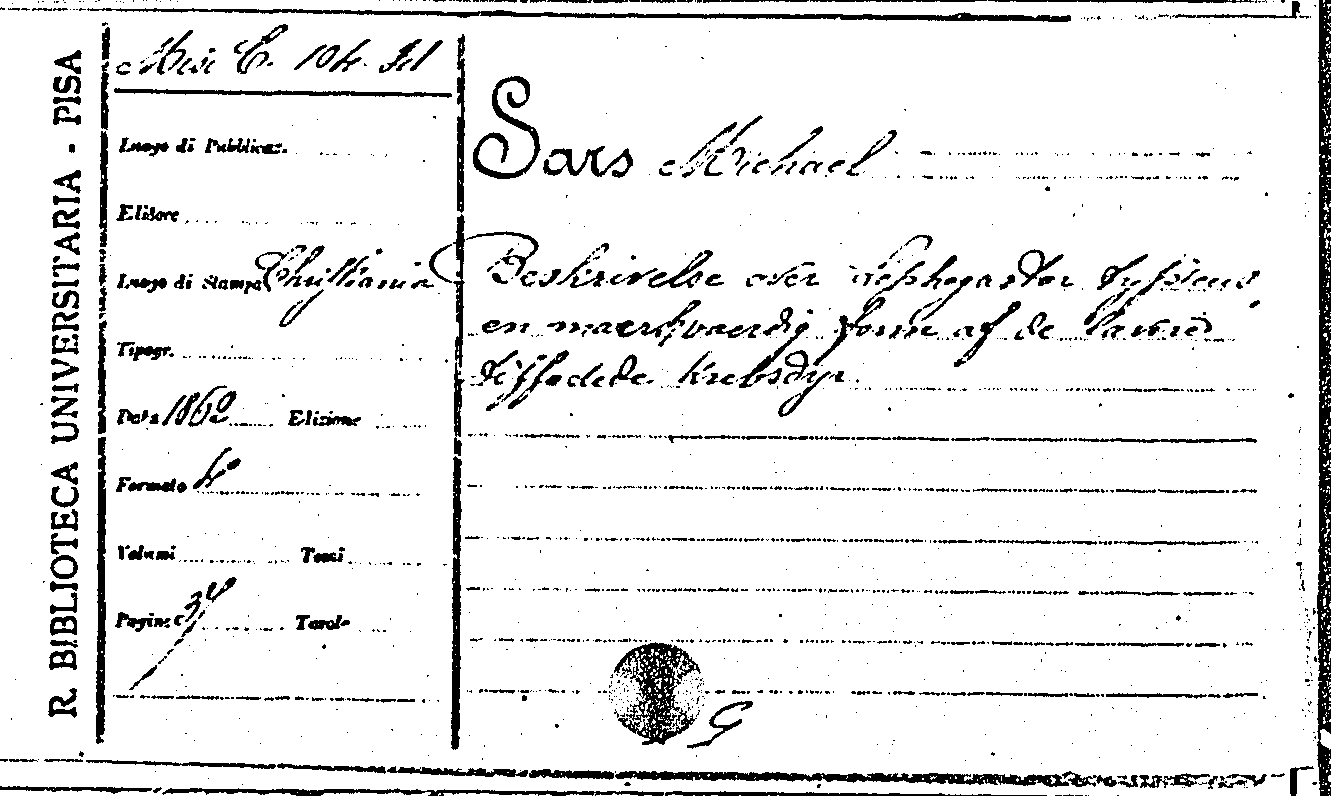 R. BIBLIOTECA UNIVERSITARIA - PISA
Misc C. 104. 21
Luogo di Pubblicaz.
Editore
Luogo di Stampa Christiania
Tipogr.
Data 1862 Edizione
Formato 4°
Volumi Tomi
Pagine 34 Tavole
Sars Michael
Beskrivelse over Lophogaster typicus,
en maerkvaerdig form af de lavere
tiffodede Krebsdyr.
G